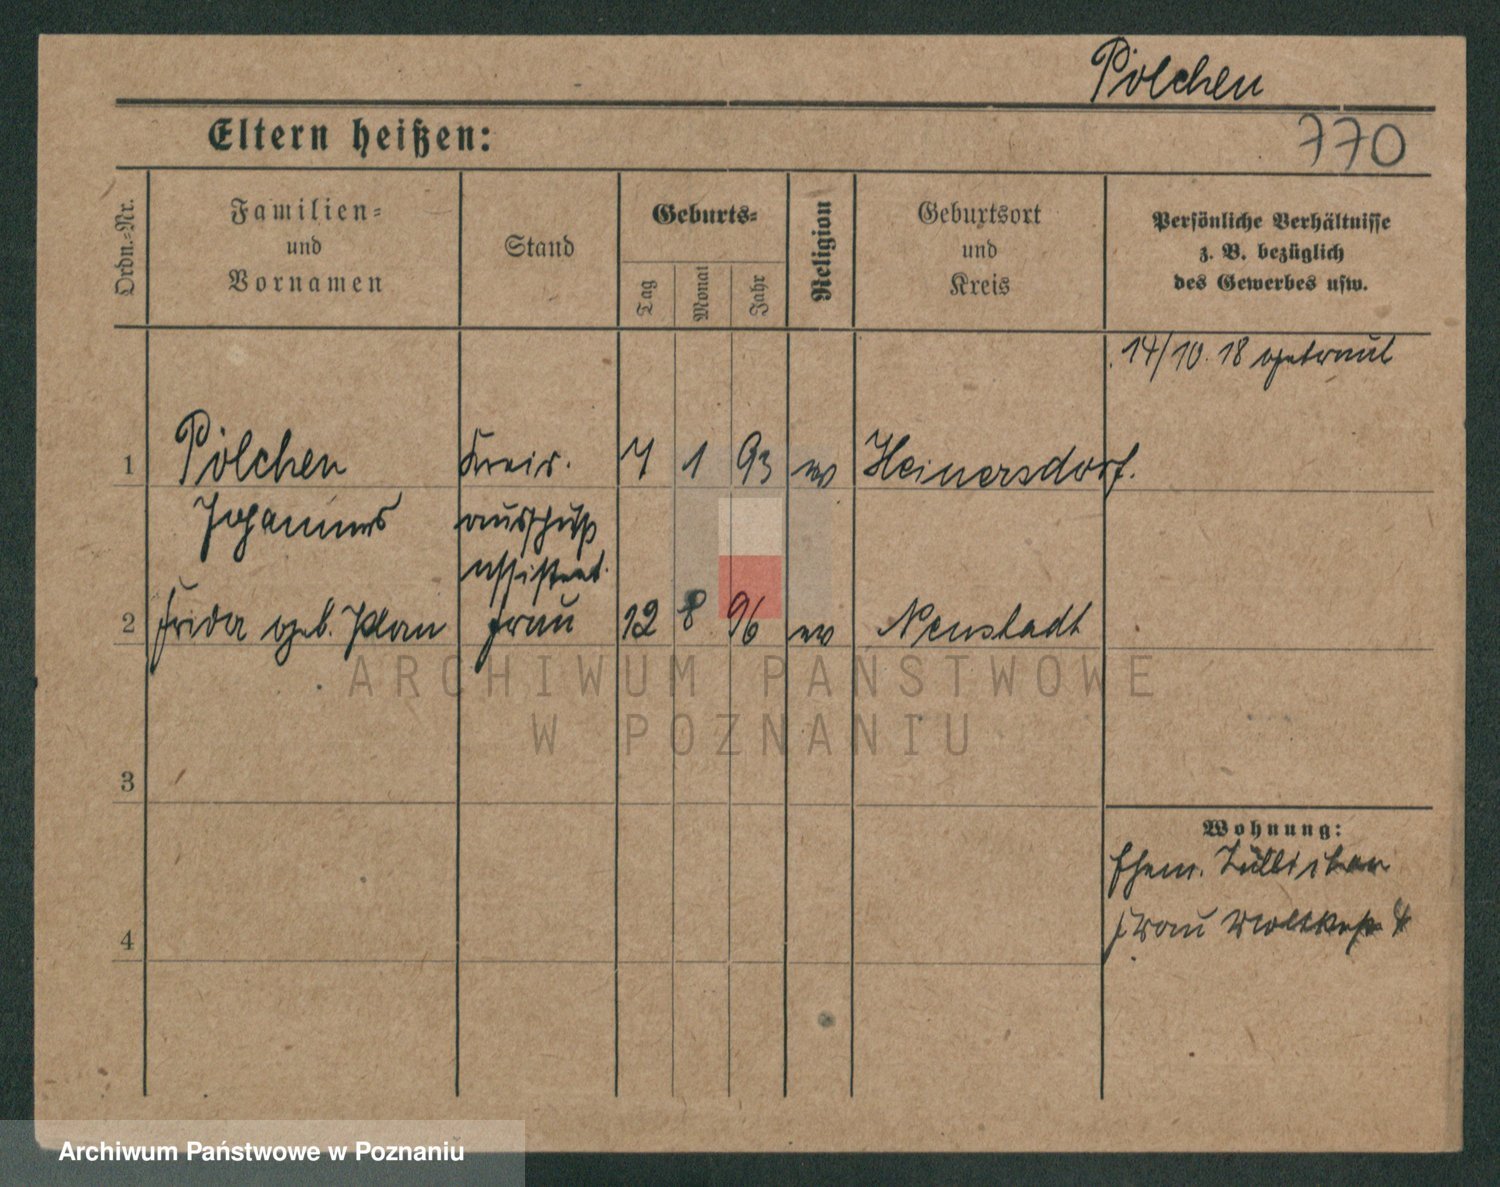 Pölchen
770
Eltern heißen:
Ordn.-Nr.
Familien-
und
Vornamen
Stand
Geburts-
Tag
Monat
Jahr
Religion
Geburtsort
und
Kreis
Persönliche Verhältnisse
z. B. bezüglich
des Gewerbes usw.
14/10. 18 getraut
1 Pölchen Kreis. 7 1 93 ev Heinersdorf.
Johannes ausschuß
assistent.
2 Frida geb. Plan Frau 12 8 96 ev Neustadt
3
4
Wohnung:
Ehem. Züllichau
Frau
ARCHIWUM PAŃSTWOWE
W POZNANIU
Archiwum Państwowe w Poznaniu